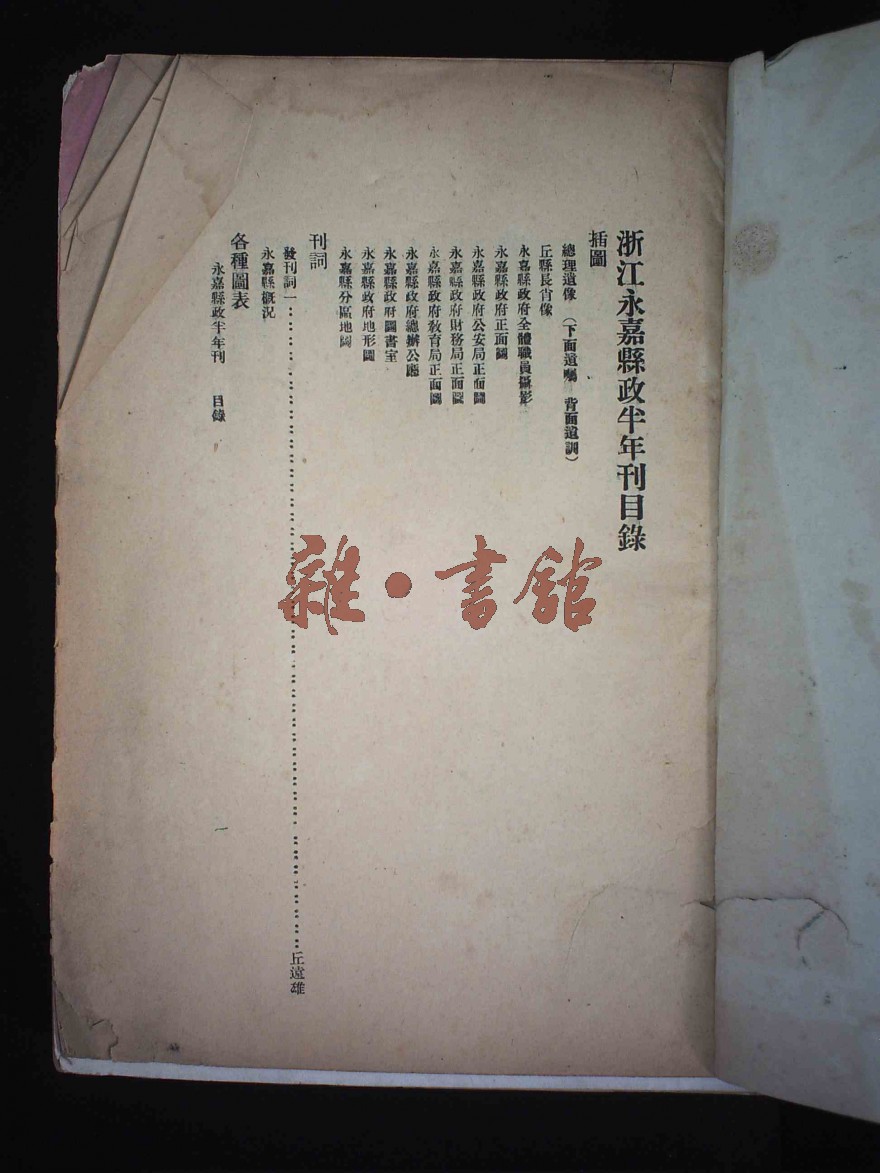 浙江永嘉縣政半年刊目錄
插圖
總理遺像（下面遺囑 背面遺訓）
丘縣長肖像
永嘉縣政府全體職員攝影
永嘉縣政府正面圖
永嘉縣政府公安局正面圖
永嘉縣政府財務局正面圖
永嘉縣政府教育局正面圖
永嘉縣政府總辦公廳
永嘉縣政府圖書室
永嘉縣政府地形圖
永嘉縣分區地圖
刊詞
發刊詞一……丘遠雄
永嘉縣概況
各種圖表
永嘉縣政半年刊 目錄
一
雜·書館